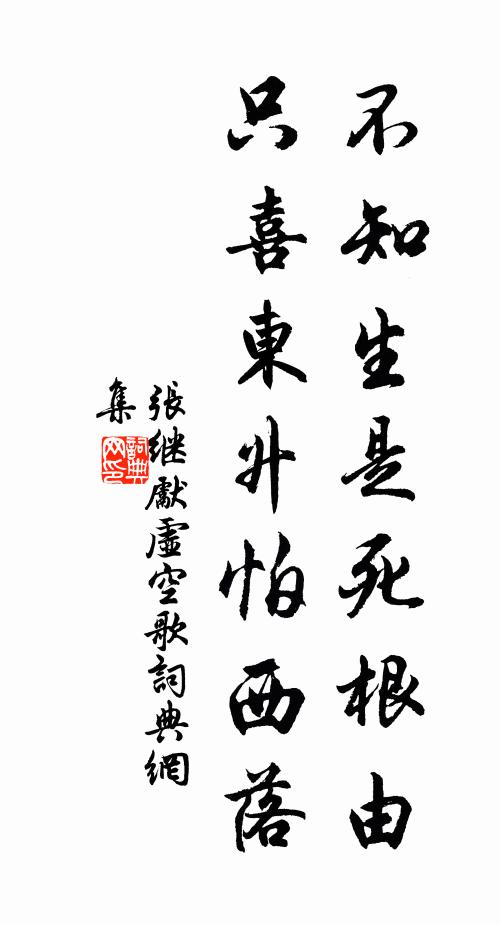 不知生是死根由
只喜東升怕西落
張继獻虛空歌詞典網
集
詞典网印